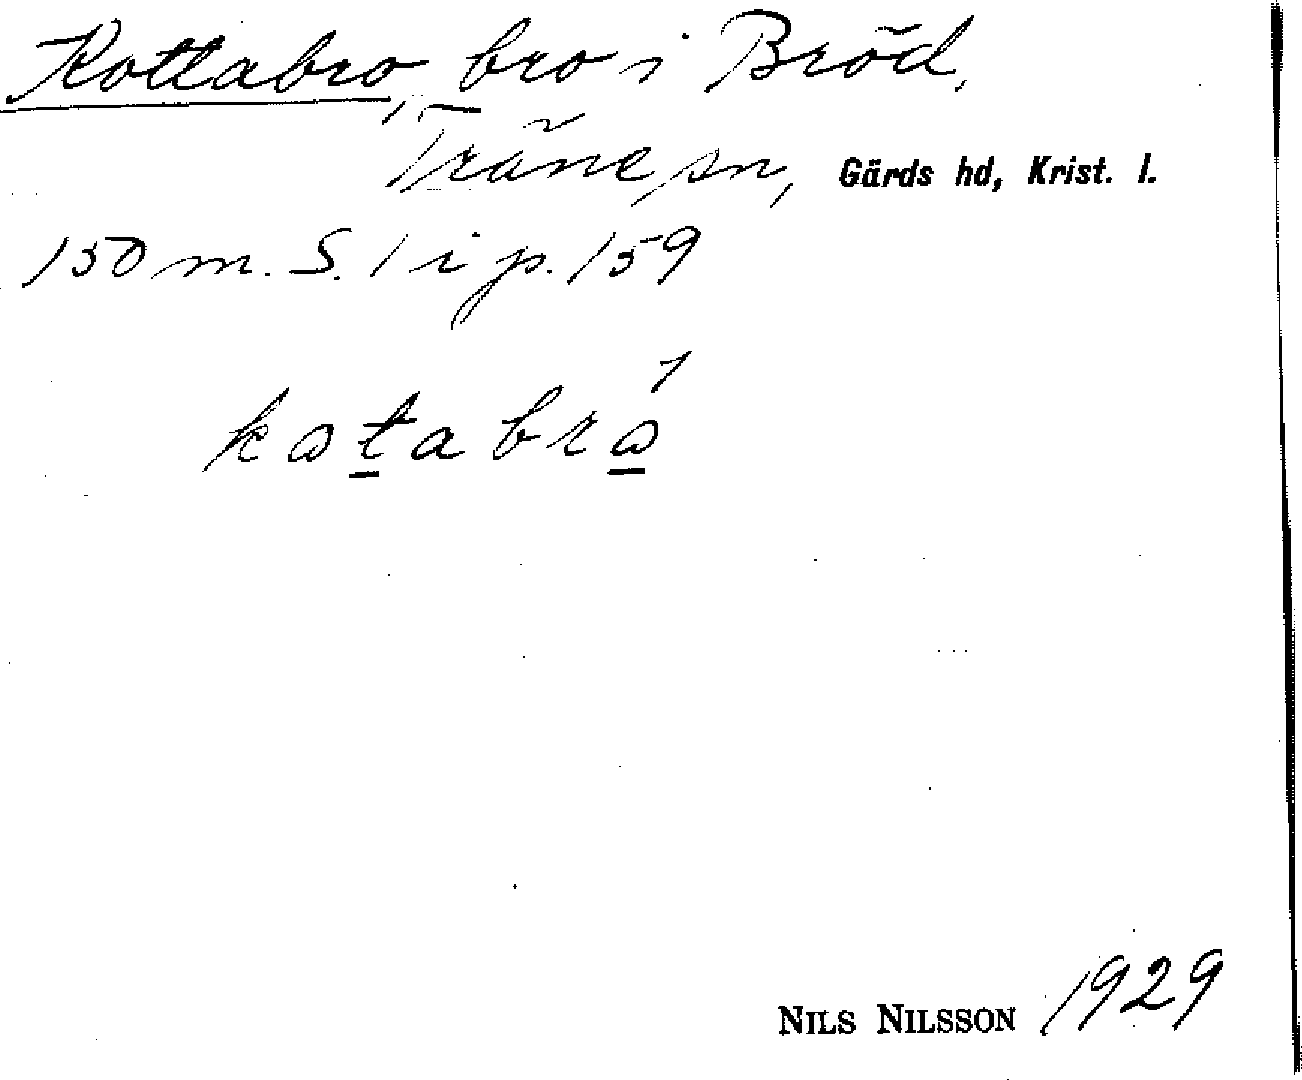 Kottabro, bro i Bröd,
Träne sn, Gärds hd, Krist. l.
150 m. S. 1 i p. 159
kotabró
NILS NILSSON 1929